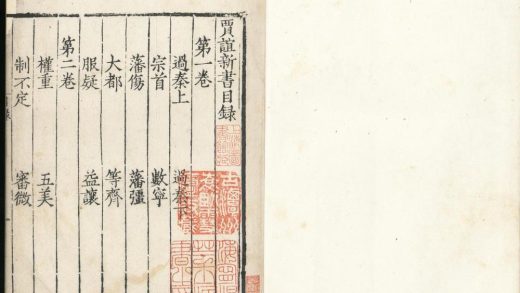 賈誼新書目録
第一卷
過秦上 過秦下
宗首 數寧
藩傷 藩彊
大都 等齊
服疑 益讓
第二卷
權重 五美
制不定 審微